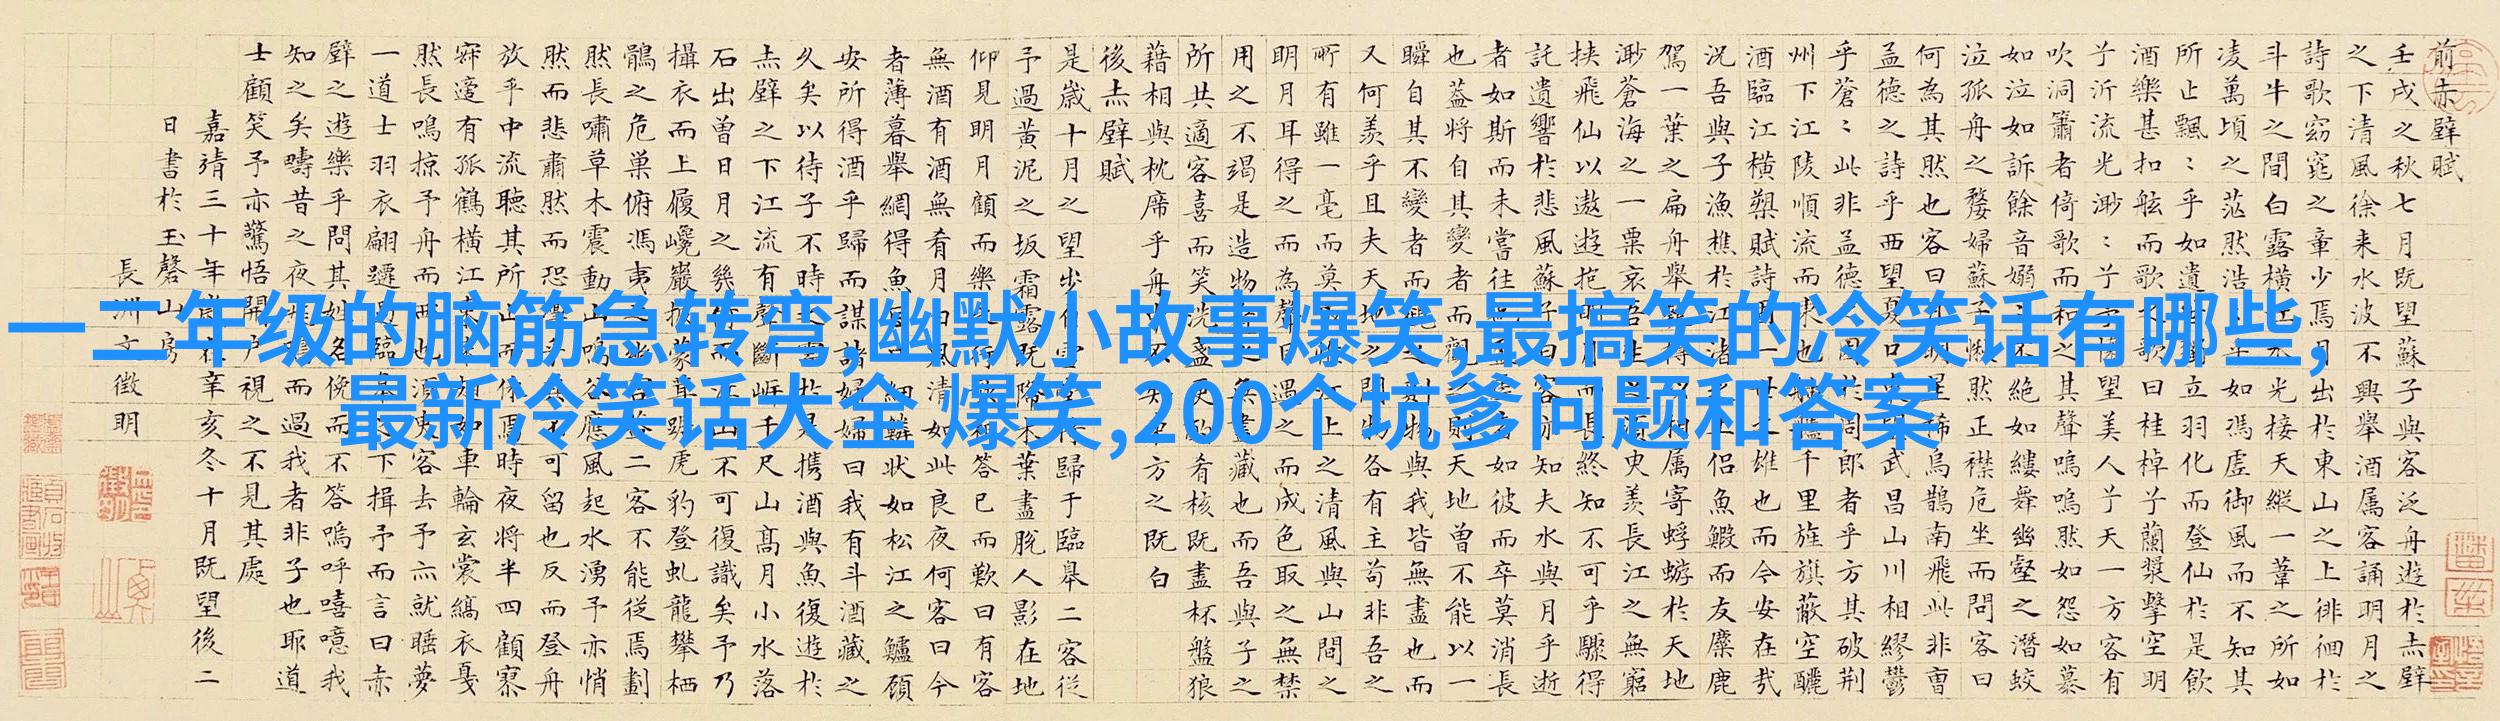 一二年级的脑筋急转弯,幽默小故事爆笑,最搞笑的冷笑话有哪些,
最新冷笑话大全 爆笑,200个坑爹问题和答案
前赤壁賦
壬戌之秋七月既望蘇子與客泛舟遊於赤壁
之下清風徐来水波不興舉酒属客誦明月之
詩歌窈窕之章少焉月出於東山之上徘徊於
斗牛之間白露橫江水光接天縱一葦之所如
凌萬頃之茫然浩乎如馮虛御風而不知其
所止飄〻乎如遺立羽化而登仙於是飲
酒樂甚扣舷而歌歌曰桂棹兮蘭槳擊空明
兮泝流光渺〻兮望美人兮天一方客有
吹洞簫者倚歌而和之其聲嗚嗚然如怨如慕
如泣如訴餘音嫋不絕如縷舞幽壑之潛蛟
泣孤舟之嫠婦蘇子愀然正襟危坐而問客曰
何為其然也客曰明星稀烏鵲南飛此非曹
孟德之詩乎西望夏口武昌山川相繆鬱
乎蒼〻此非孟德困於周郎者乎方其破荊
州下江陵順流而東也艫千里旌旗蔽空釃
酒臨江橫槊賦詩一世之雄也而今安在哉
況吾與子漁樵於江渚之上侶魚鰕而友麋鹿
駕一葉之扁舟舉以相属寄蜉蝣於天地
渺蒼海之一粟哀吾生須臾羨長江之無窮
挾飛仙以遨遊抱明而長終知不可乎驟得
託遺響於悲風蘇子曰客亦知夫水與月乎逝
者如斯而未嘗往者如彼而卒莫消長
也蓋將自其變者而觀則天地曾不能以一
瞬自其不變者而觀之則物與我皆無盡也而
又何羨乎且夫天地之間物各有主苟非吾之
所有雖一毫而莫江上之清風與山間之
明月耳得之而為聲目遇之而成色取之無禁
用之不竭是造物無盡藏也而吾與子之
所共適客喜而笑洗盞更酌肴核既盡杯盤狼
藉相與枕席乎舟知東方之既白
後赤壁賦
是歲十月之望步自雪將歸于臨皋二客從
予過黃泥之坂霜露既降木葉盡脫人影在地
仰見明月顧而樂之行歌答已而歎曰有客
無酒有酒無肴月白風清如此良夜何客曰今
者薄暮舉網得魚細鱗狀如松江之鱸顧
安所得酒乎歸而謀諸婦婦曰我有斗酒藏之
久矣以待子不時之於是攜酒與魚復遊於
赤壁之下江流有聲斷岸千尺山高月小水落
石出曾日月之幾何而江山不可復識矣予乃
攝衣而上履巉巖披蒙茸踞虎豹登虬龍攀栖
鶻之危巢俯馮夷之幽二客不能從焉劃
然長嘯草木震動山鳴谷應風起水湧予亦悄
然而悲肅然而恐可留也反而登舟
放乎中流聽其所止而休焉時夜將半四顧寂
寥適有孤鶴橫江東來如車輪玄裳縞衣戛
然長鳴掠予舟而西也須臾客去予亦就睡夢
一道士羽衣翩躚過臨皋之下揖予而言曰赤
壁之遊樂乎問其姓名俛而不答嗚呼嘻噫我
知之矣疇昔之夜飛鳴而過我者非子也耶道
士顧笑予亦驚悟開戶視之不見其處
嘉靖三十年歲在辛亥冬十月既望後二
日書於玉磬山房
長洲文徵明